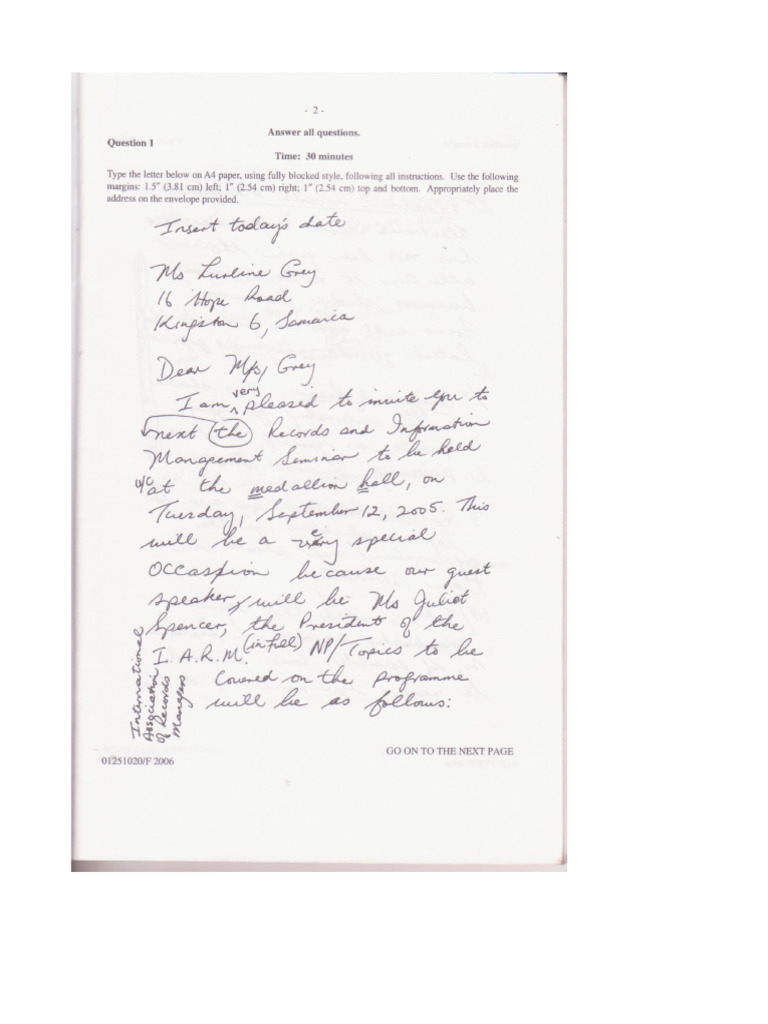 - 2 -
Answer all questions.
Question 1
Time: 30 minutes
Type the letter below on A4 paper, using fully blocked style, following all instructions. Use the following
margins: 1.5" (3.81 cm) left; 1" (2.54 cm) right; 1" (2.54 cm) top and bottom. Appropriately place the
address on the envelope provided.
Insert today's date
Ms Lurline Grey
16 Hope Road
Kingston 6, Jamaica
Dear Ms/ Grey
very
I am pleased to invite you to
next the Records and Information
Management Seminar to be held
u/c at the medallion hall, on
Tuesday, September 12, 2005. This
will be a very special
occasion because our guest
speaker, will be Ms Juliet
Spencer, the President of the
I. A. R. M. (in full) NP/Topics to be
International
Association
of Records
Managers
Covered on the programme
will be as follows:
GO ON TO THE NEXT PAGE
01251020/F 2006